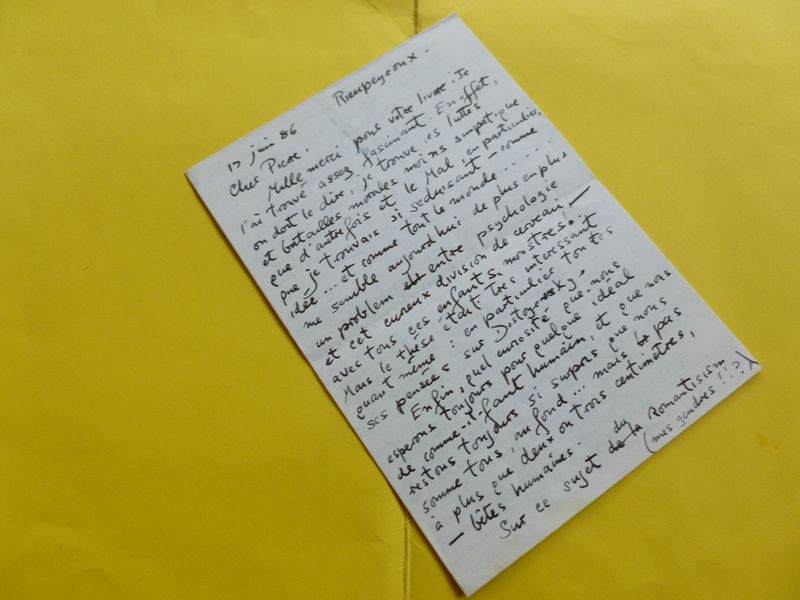 Rieupeyroux.
17 juin 86
Cher Pierre.
Mille merci pour votre livre. Je
l'ai trouvé assez fascinant. En effet,
on doit le dire, je trouve les luttes
et batailles morales moins simpatique
que d'autrefois et le Mal, en particulier,
que je trouvais si seduisant - comme
idée ... et comme tout le monde .....
me semble aujourd'hui de plus en plus
un problem entre psychologie
et cet cureux division de cerveau —
avec tous ces enfants, monstres!
Mais le thèse était très interessant
quant même : en particulier toutes
ses pensées sur Dostoyevsky.
Enfin, quel curiosité que nous
esperons toujours pour quelque idéal
de comme-il-faut humain, et que nous
restons toujours si surpris que nous
somme tous, au fond... mais pas
à plus que deux ou trois centimètres,
— bêtes humaines.
Sur ce sujet du Romantisism
(mes gendres!!?)